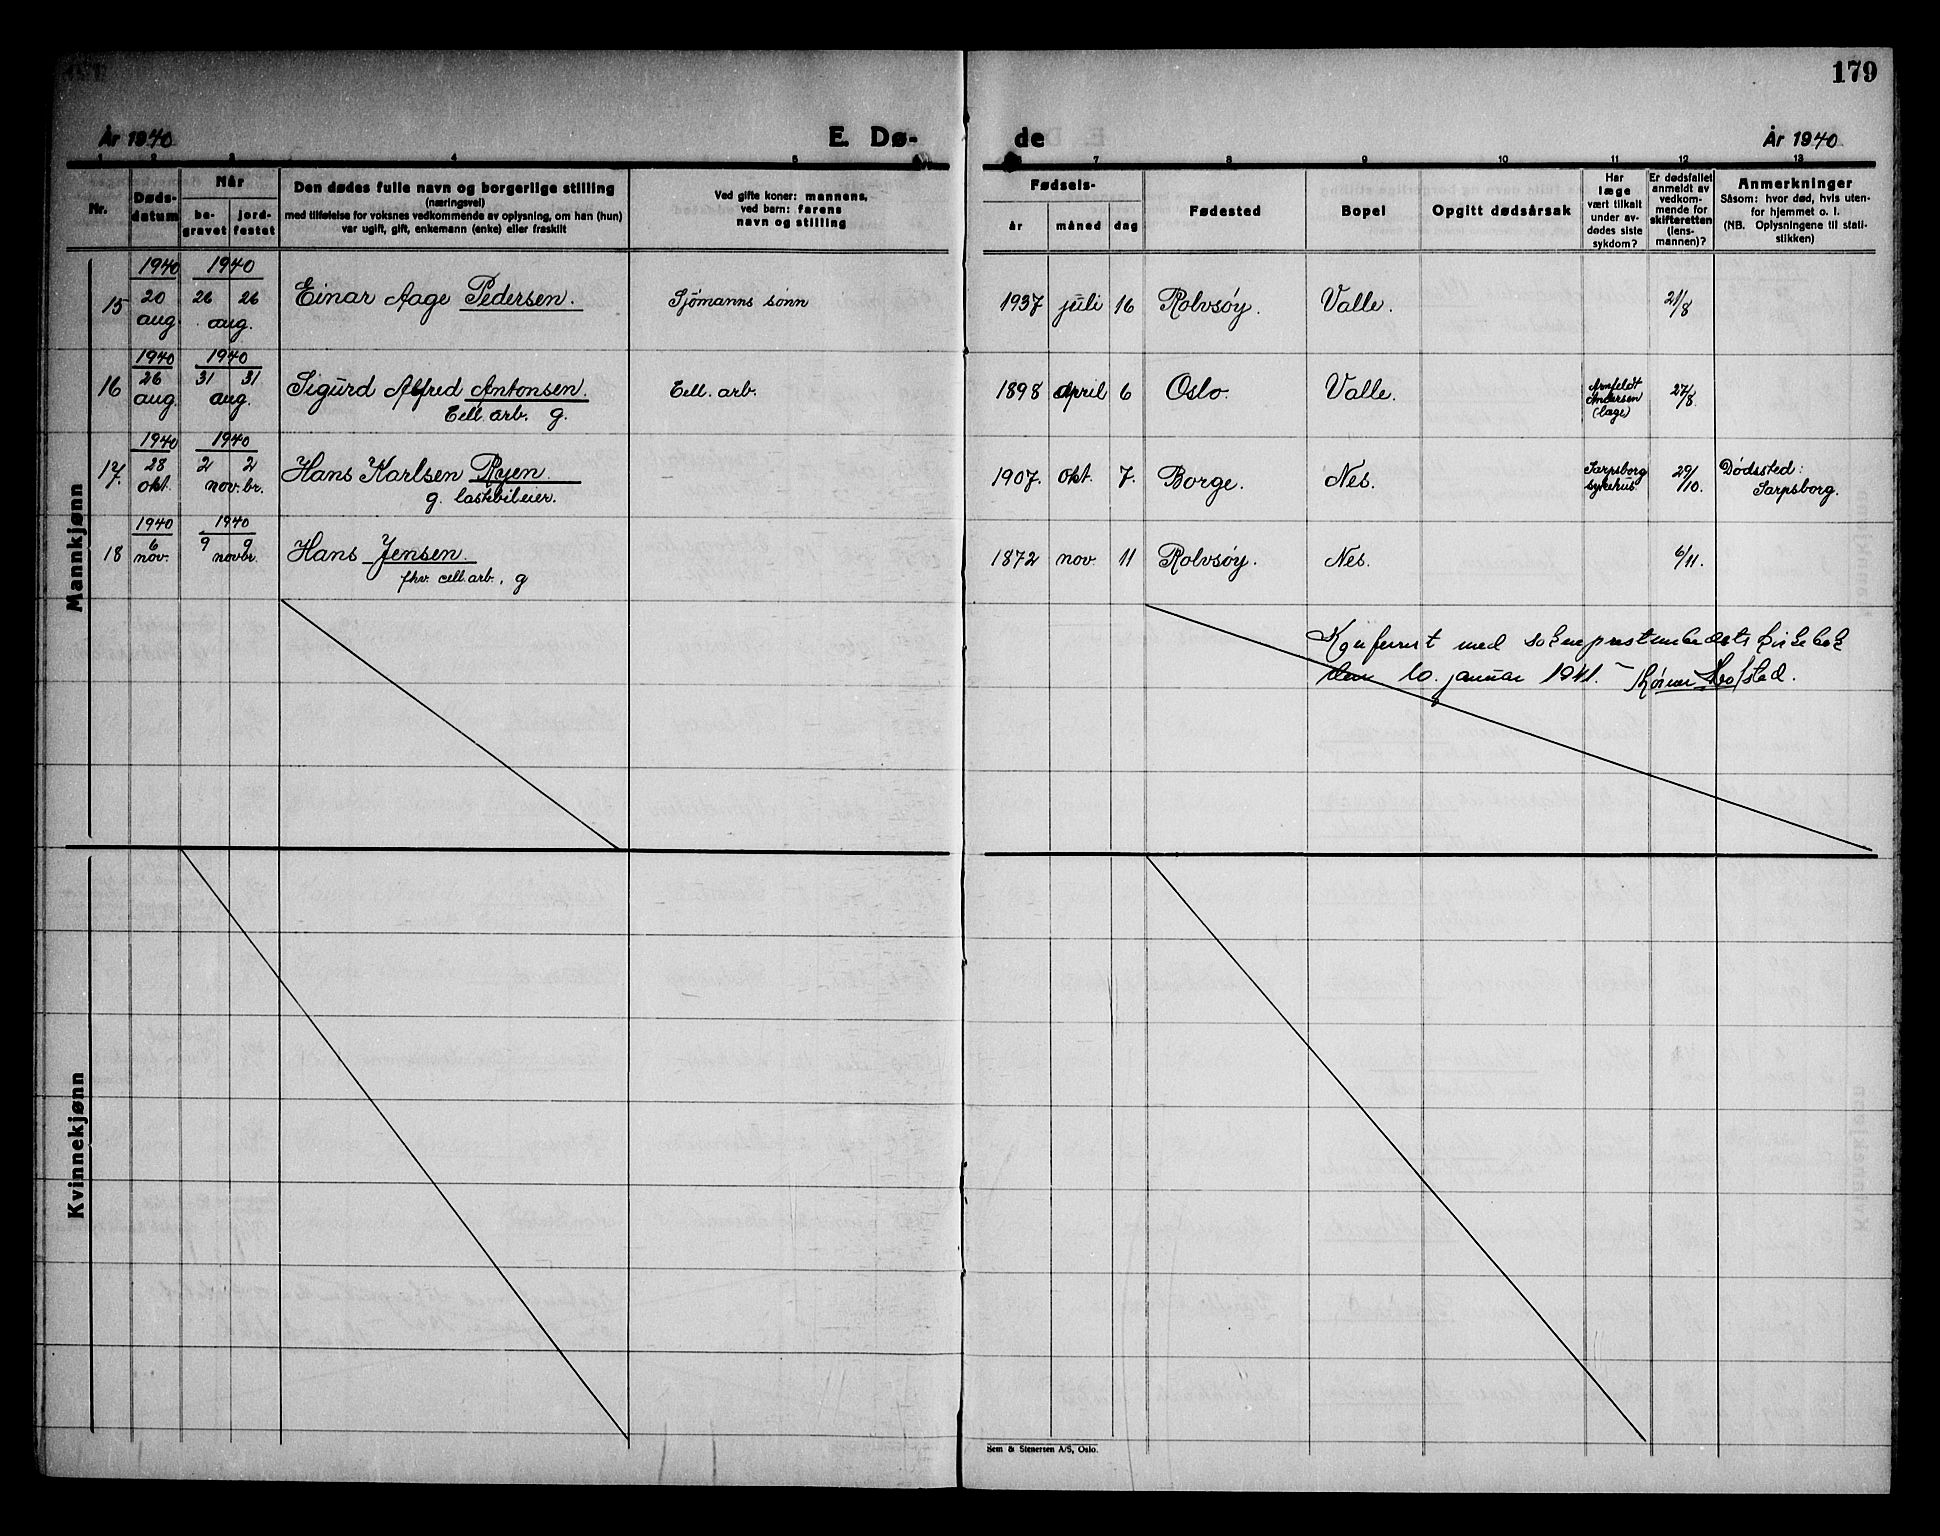 179
År 1940
E. Dø-
de
År 1940
1 2 3 4 5
6 7 8 9 10 11 12 13
Nr.
Døds-
datum
Når
be-
gravet
jord-
festet
Den dødes fulle navn og borgerlige stilling
(næringsvei)
med tilføielse for voksnes vedkommende av oplysning, om han (hun)
var ugift, gift, enkemann (enke) eller fraskilt
Ved gifte koner: mannens,
ved barn: farens
navn og stilling
Fødsels-
år
måned
dag
Fødested
Bopel
Opgitt dødsårsak
Har
læge
vært tilkalt
under av-
dødes siste
sykdom?
Er dødsfallet
anmeldt av
vedkom-
mende for
skifteretten
(lens-
mannen)?
Anmerkninger
Såsom: hvor død, hvis uten-
for hjemmet o. l.
(NB. Oplysningene til stati-
stikken)
Mannkjønn
1940 1940
15 20 26 26 Einar Aage Pedersen. Sjømanns sønn 1937 juli 16 Rolvsøy. Valle. 21/8
aug. aug.
1940 1940
16 26 31 31 Sigurd Alfred Antonsen. Cell. arb. 1898 april 6 Oslo. Valle. Arnfeldt 27/8.
aug. aug. Cell. arb. g. Andersen
(læge)
1940 1940
17. 28 2 2 Hans Karlsen Ryen. 1907. okt. 7. Borge. Nes. Sarpsborg 29/10. Dødssted:
okt. nov.br. g. lastebileier. sykehus Sarpsborg.
1940 1940
18 6 9 9 Hans Jensen. 1872 nov. 11 Rolvsøy. Nes. 6/11.
nov. novbr. fhv. cell. arb., g
Konferert med sokneprestembedets kirkebok
den 10. januar 1941.
Kvinnekjønn
Sem & Stenersen A/S, Oslo.